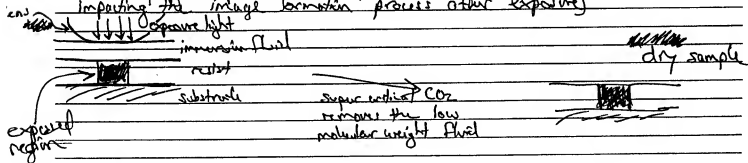 impacting the image formation process after exposure)
lens
exposure light
immersion fluid
resist
substrate
exposed
region
super critical CO2
removes the low
molecular weight fluid
dry sample